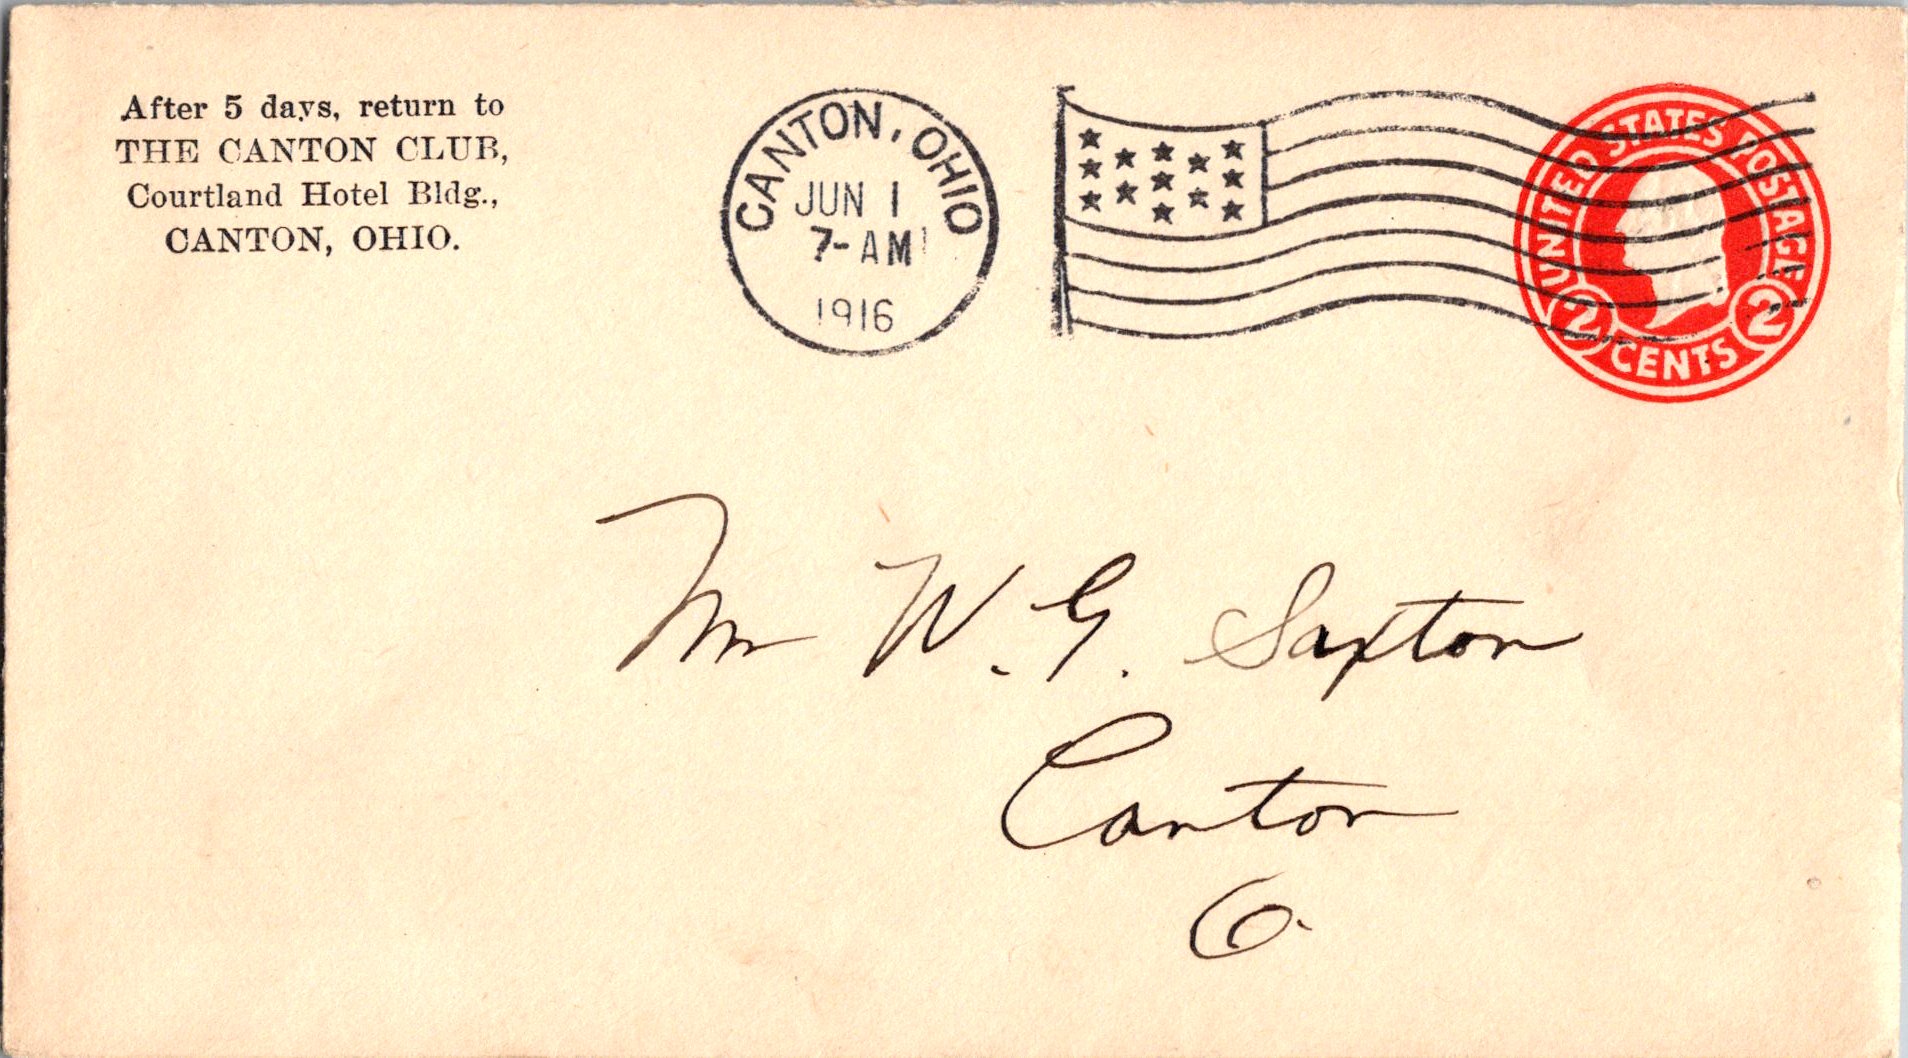 After 5 days, return to
THE CANTON CLUB,
Courtland Hotel Bldg.,
CANTON, OHIO.
CANTON, OHIO
JUN 1
7-AM
1916
UNITED STATES POSTAGE
2 CENTS 2
Mr W. G. Saxton
Canton
O.